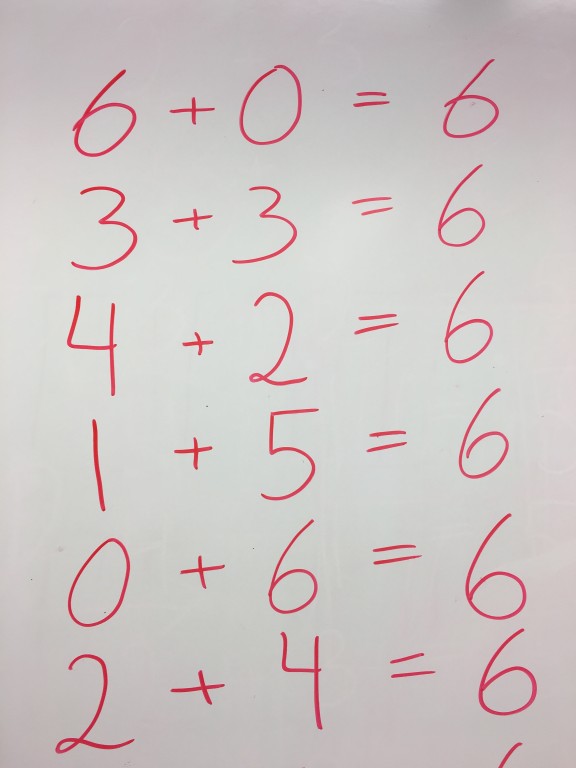 6 + 0 = 6
3 + 3 = 6
4 + 2 = 6
1 + 5 = 6
0 + 6 = 6
2 + 4 = 6